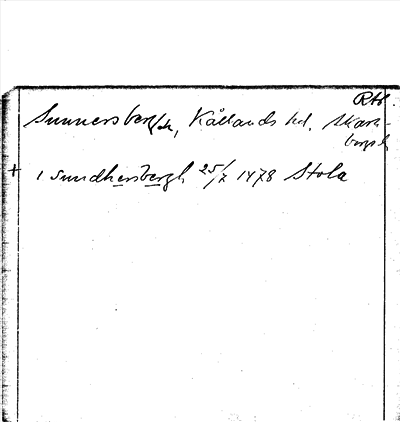 Rtl.
Sunnersberg/sk, Kållands hd. Skara-
borgs l.
+ i sundhersbergh 25/7 1478 Stola